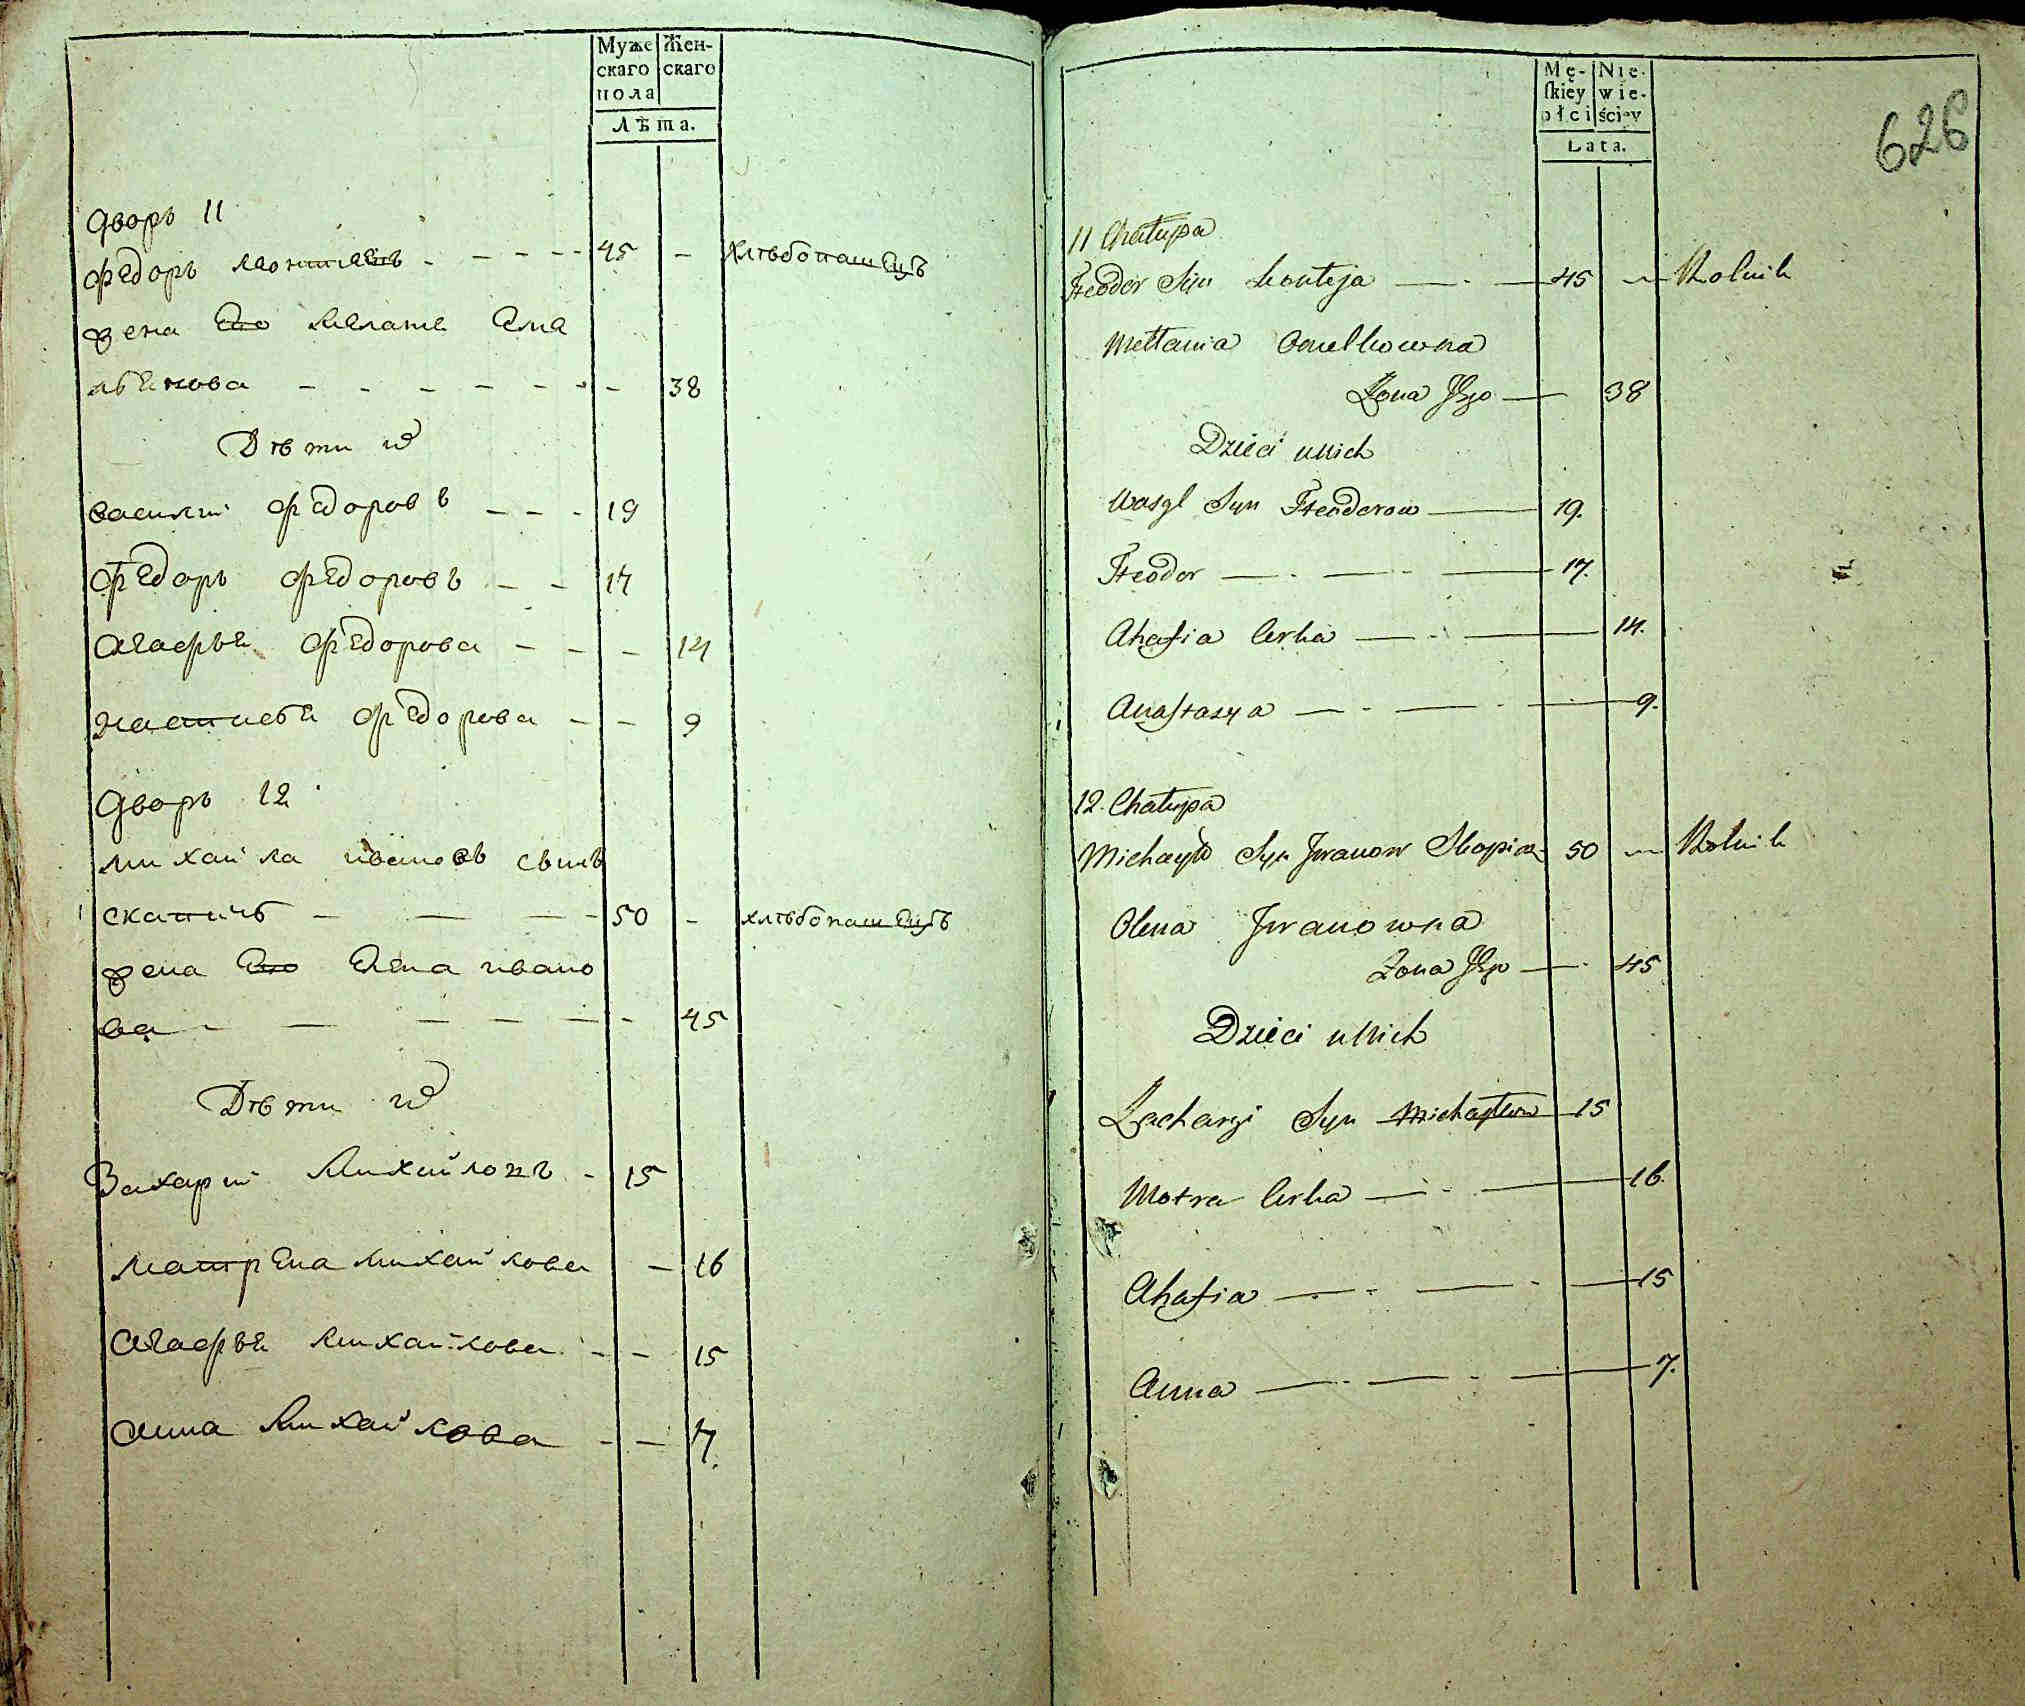 Муже Жен-
скаго скаго
пола
Лѣта.
Дворъ 11
Федоръ Леонтиевъ - - - - 45 - хлѣбопашецъ
Жена Его Мелания Еме
льянова - - - - - - - 38
Дѣти их
Василий Федоровъ - - - 19
Федоръ Федоровъ - - 17
Агафья Федорова - - - 14
Настасья Федорова - - 9
Дворъ 12
Михайла Ивановъ сынъ
Скапичъ - - - - 50 - хлѣбопашецъ
Жена Его Елена Ивано
ва - - - - - - 45
Дѣти их
Захарий Михайловъ - 15
Матрена Михайлова - 16
Агафья Михайлова - - 15
Анна Михайлова - - 7.
Mę- Nie-
skiéy wie-
płci ściey
Lata.
626
11 Chałupa
Fteodor Syn Leonteja — - — 45 — Rolnik
Mełłania Omelkowna
Żona Jego — 38
Dzieci u Nich
Wasyl Syn Fteodorow — 19.
Fteodor — - — - — 17.
Ahafia Corka — - — 14.
Anastasya — - — - — 9.
12. Chałupa
Michayło Syn Iwanow Skopicz 50 — Rolnik
Olena Iwanowna
Żona Jego — - 45
Dzieci u Nich
Zacharyi Syn Michayłow 15
Motra Corka — - - — 16.
Ahafia — - - — - — 15
Anna — - — - — 7.